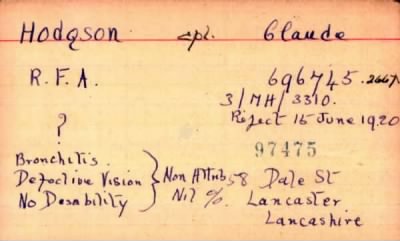 Hodgson cpl. Claude
R.F.A. 696745. 2667.
3/MH/3310.
Reject 15 June 1920
?
97475
Bronchitis.
Defective Vision } Non Attrib 58 Dale St
No Desability Nil %. Lancaster
Lancashire